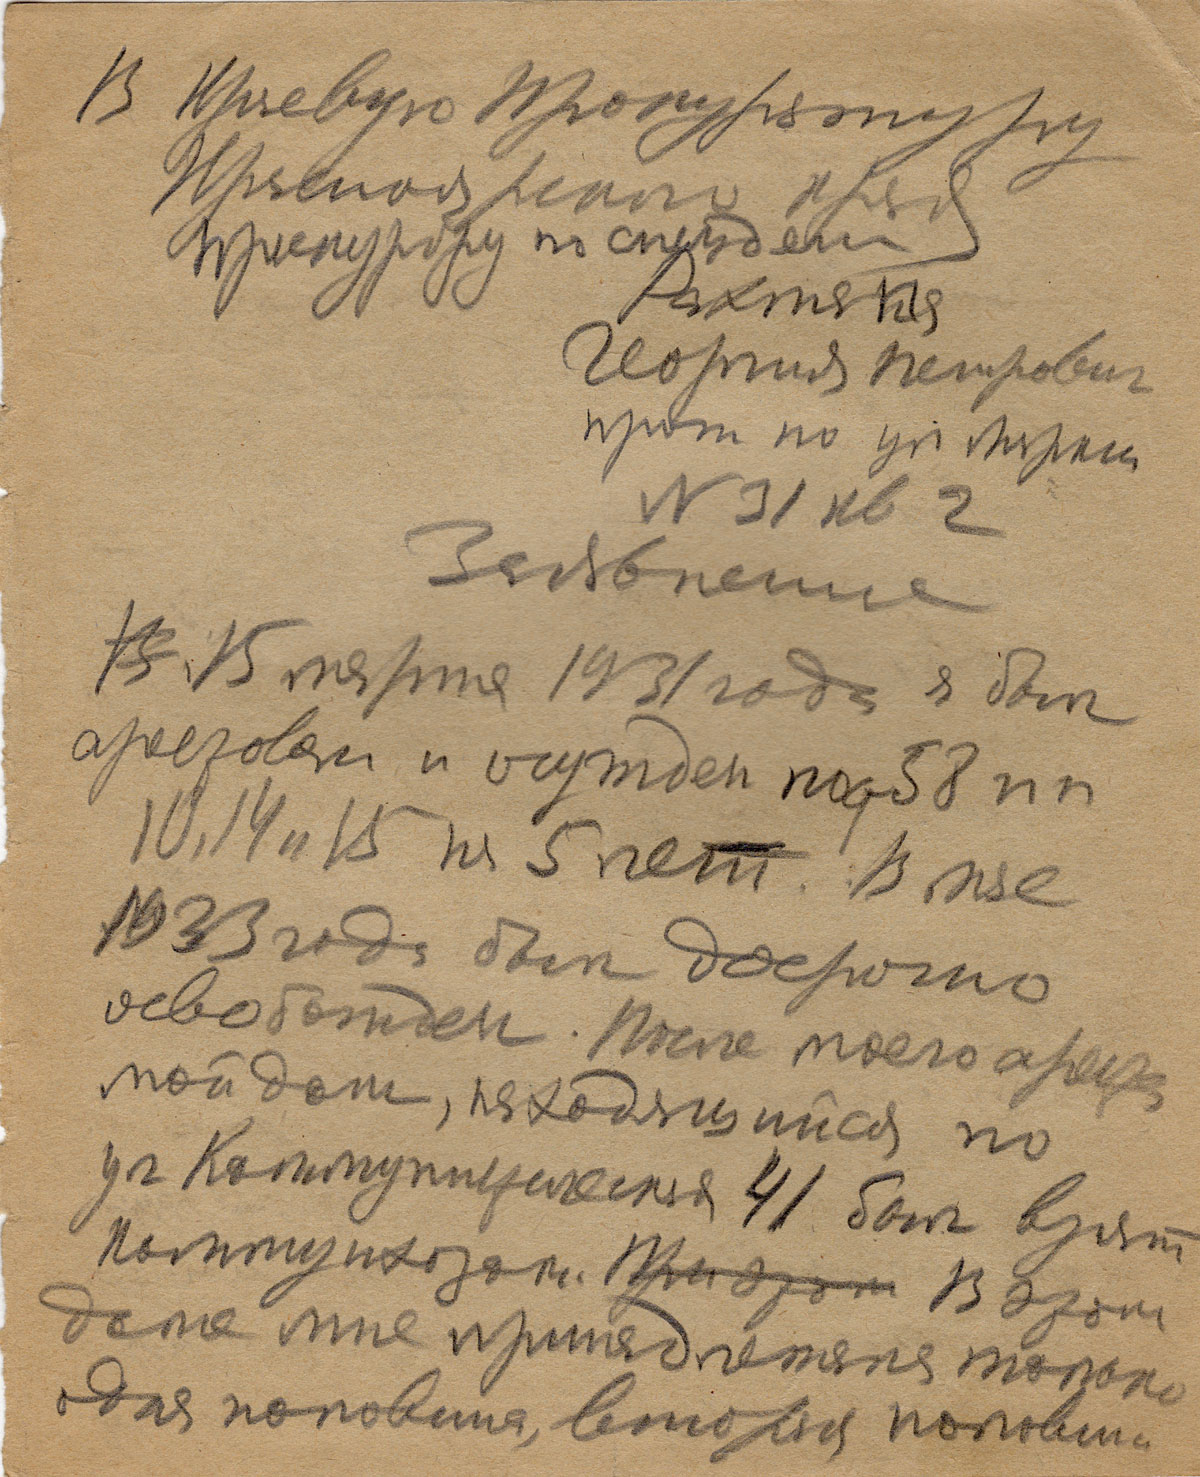 В Краевую Прокуратуру
Красноярского края
прокурору по спецделам
Георгия Петрович
прож по ул Маркса
N 31 кв 2
Заявление
15 марта 1931 года я был
арестован и осужден по 58 пп
10, 14 и 15 на 5 лет. В мае
1933 года был досрочно
освобожден. После моего ареста
мой дом, находящийся по
ул Коммунистическая 41 был взят
Коммунхозом. При этом В этом
доме мне принадлежала только
одна половина, вторая половина